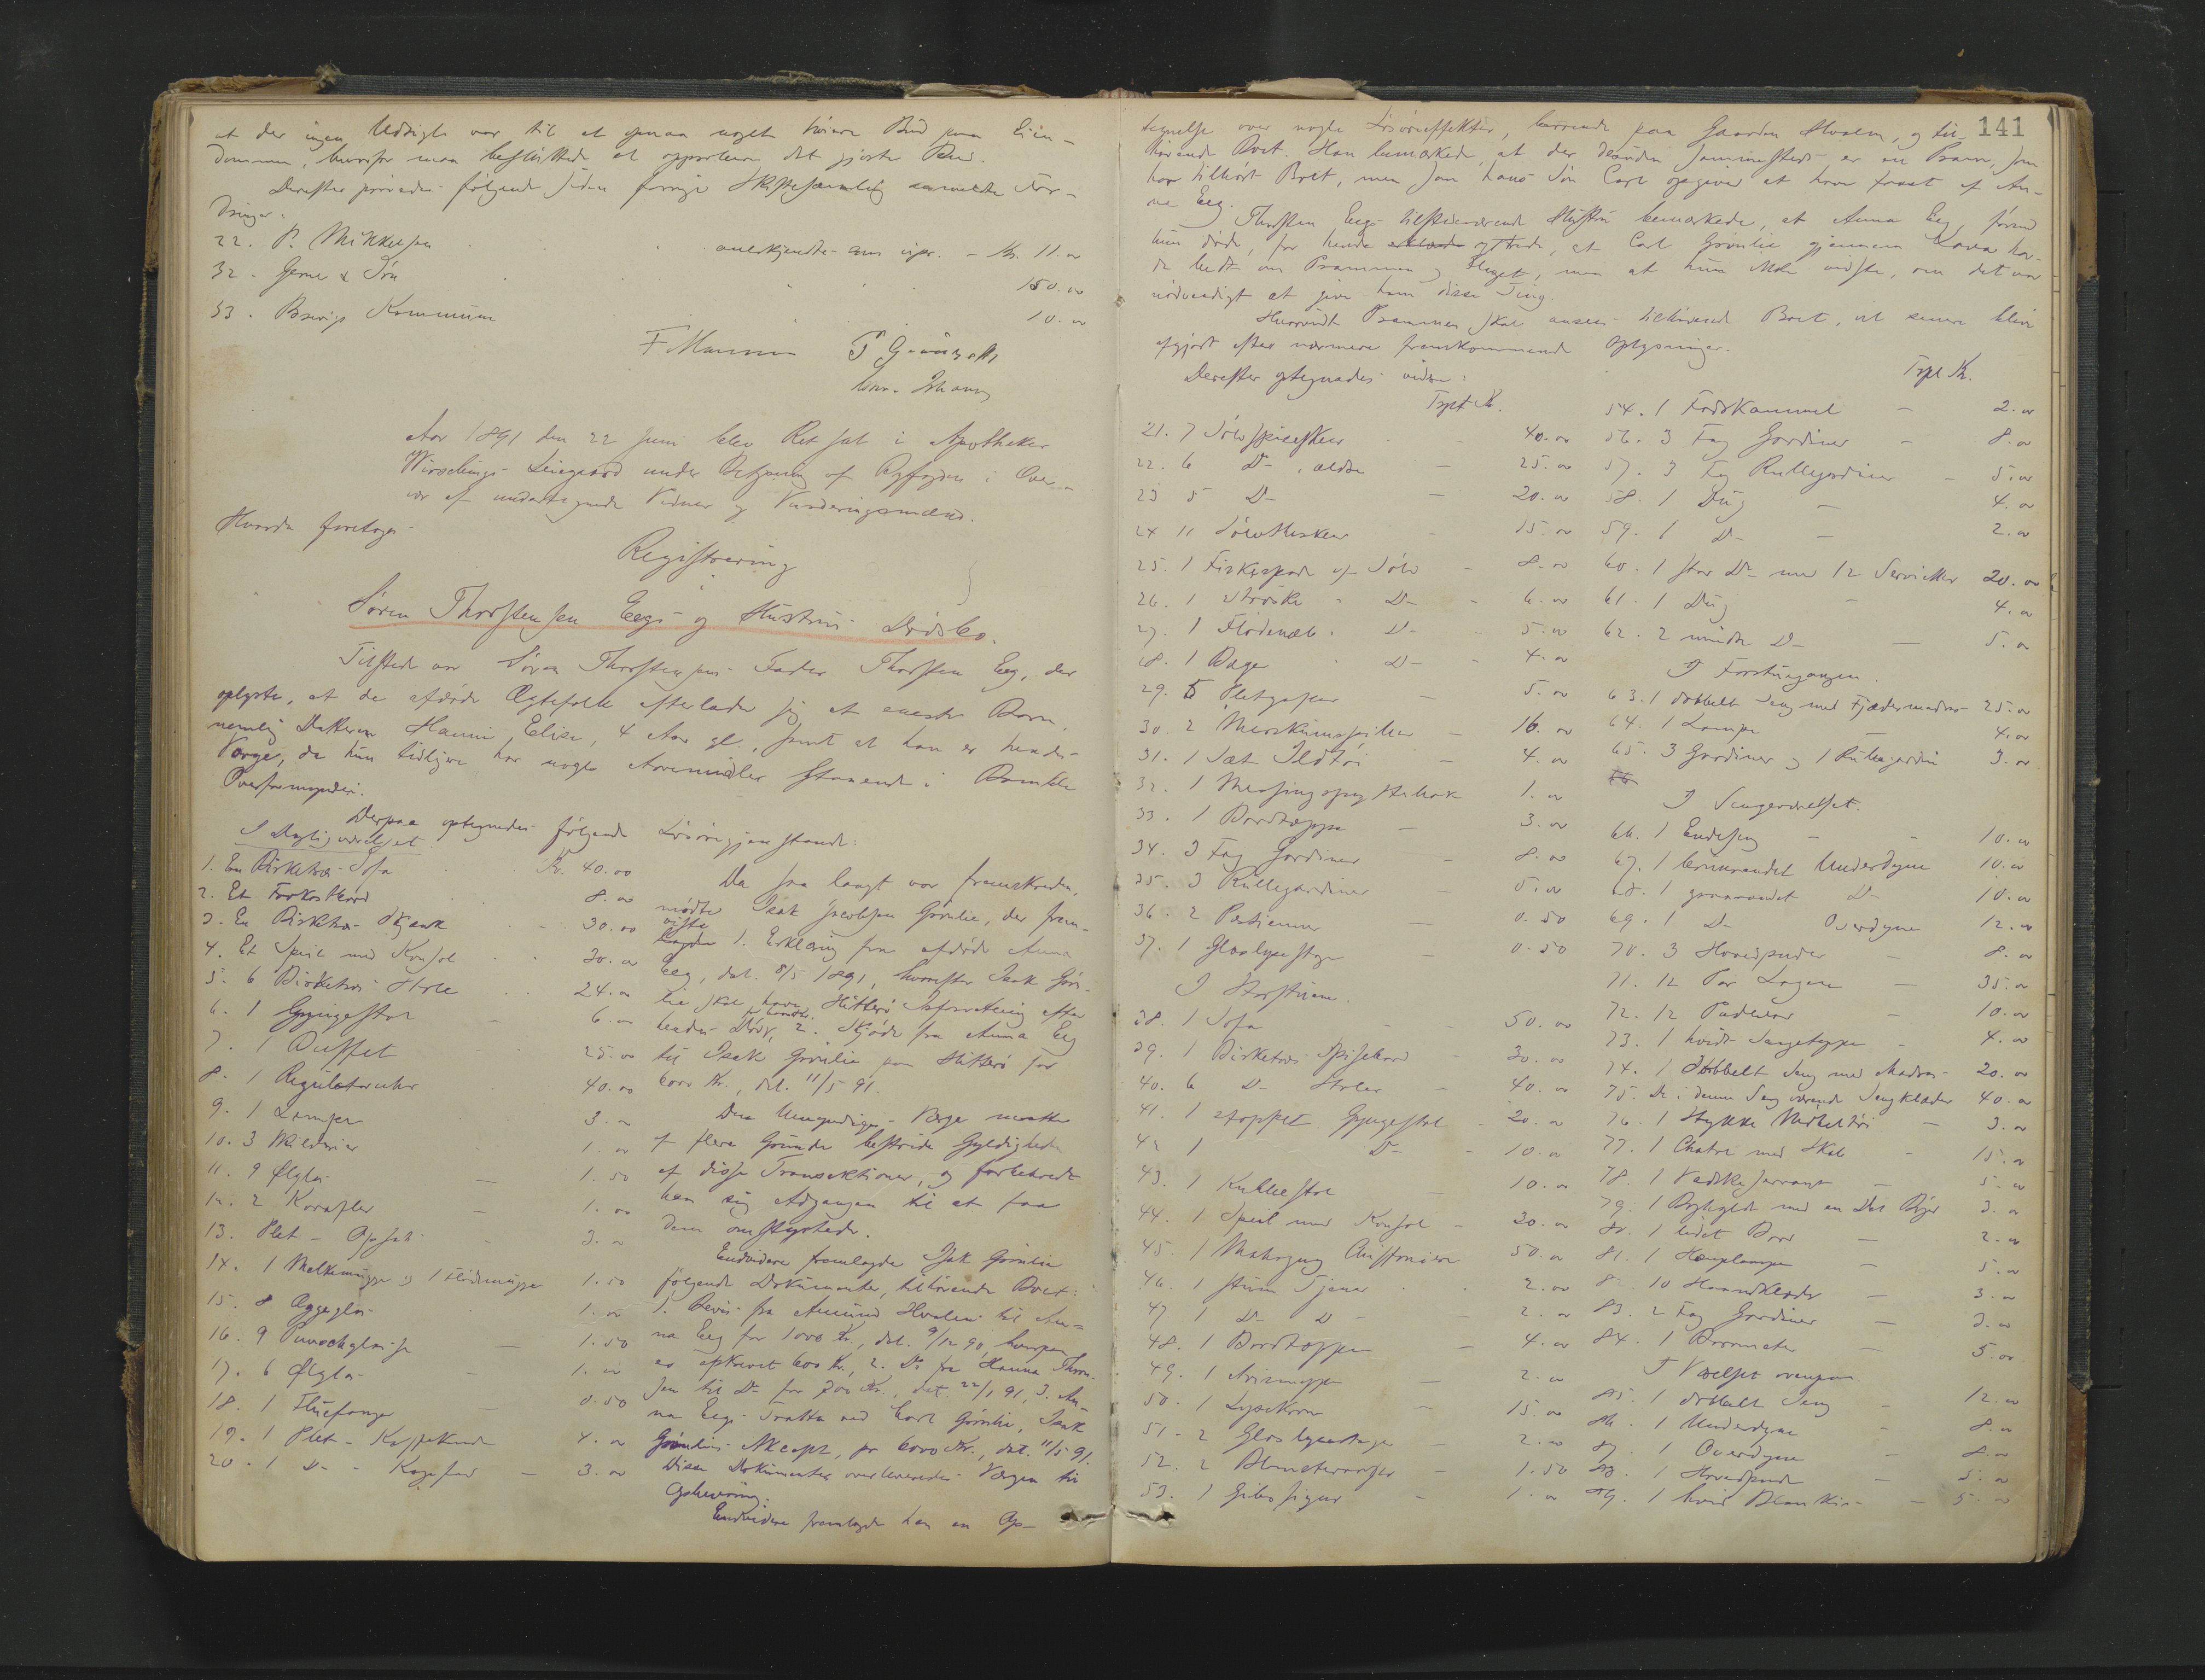 at der ingen Udsigt var til at opnaa noget høiere Bud paa Eien-
dommen, hvorfor man besluttede at approbere det gjorte Bud.
Derefter prøvedes følgende siden forrige Skiftesamling anmeldte For-
dringer:
22. P. Mikkelsen anerkjendtes som upr. - Kr. 11.00
32. Gerne & Søn 150.00
33. Brevigs Kommune 10.00
F Mannen
Aar 1891 den 22 Juni blev Ret sat i Apotheker
Wirschings Leiegaard under Betjening af Byfogden i Over-
vær af undertegnede Vidner og Vurderingsmænd.
Hvorda foretoges
Registrering
i
Søren Thorstensen Eegs og Hustrus Dødsbo.
Tilstede var Søren Thorstensens Fader Thorsten Eeg, der
oplyste, at de afdøde Ægtefolk efterlader sig et eneste Barn,
nemlig Datteren Hanni Elise, 4 Aar gl., samt at han er hendes
Værge, da hun tidligere har nogle Arvemidler staaende i Bamble
Overformynderi.
Derpaa optegnedes følgende Løsøregjenstande:
I Dagligværelset.
1. En Birketræs Sofa Kr. 40.00
2. Et Frokostbord 8.00
3. En Birketræs Skjænk 30.00
4. Et Speil med Konsol 30.00
5. 6 Birketræs Stole 24.00
6. 1 Gyngestol 6.00
7. 1 Buffet 25.00
8. 1 Regulatoruhr 40.00
9. 1 Lampe 3.00
10. 3 Malerier 1.00
11. 9 Ølglas 1.50
12. 2 Karafler 1.00
13. Plet - Opsats 3.00
14. 1 Melkemugge og 1 Flødemugge 1.50
15. 8 Æggeglas 1.00
16. 9 Punschglasse 1.50
17. 6 Ølglas 1.00
18. 1 Fluefanger 0.50
19. 1 Plet - Kaffekande 4.00
20. 1 D- - 3.00
Da saa langt var fremskreden,
mødte Isak Jacobsen Grønlie, der frem-
viste
lagde 1. Erklæring fra afdøde Anna
Eeg, dat. 8/5 1891, hvorefter Isak Grøn-
lie skal have Hitterø efter
hendes Død, 2. Skjøde fra Anna Eeg
til Isak Grønlie paa Hitterø for
6000 Kr., dat. 11/5 91.
Den Umyndiges Værge maatte
af flere Grunde bestride Gyldigheden
af disse Transaktioner, og forbeholdt
han sig Adgangen til at faa
dem omstyrtede.
Endvidere fremlagde Isak Grønlie
følgende Dokumenter, tilhørende Boet:
1. Bevis fra Amund Hvalen til An-
na Eeg for 1000 Kr., dat. 9/12 90, hvorpaa
er afskrevet 600 Kr., 2. D- fra Hanna Thom-
sen til D- for 700 Kr., dat. 22/1 91, 3. An-
na Eegs Tratte ved Carl Grønlie, Isak
Grønlies Akcept, for 6000 Kr., dat. 11/5 91.
Disse Dokumenter overleveredes Værgen til
Opbevaring.
Endvidere fremlagde han en Op-
141
tegnelse over nogle Løsøreeffekter, beroende paa Gaarden Hvalen, og til-
hørende Boet. Han bemærkede, at der desuden sammesteds er en Pram, som
har tilhørt Boet, men som hans Søn Carl opgiver at have faaet af An-
na Eeg.
Thorsten Eegs tilstedeværende Hustru bemærkede, at Anna Eeg, førend
hun døde, for hende ytrede, at Carl Grønlie gjennem Karen hav-
de bedt om Prammen og Flaget, men at hun ikke vidste, om det var
nødvendigt at give ham disse Ting.
Hvorvidt Prammen skal ansees tilhørende Boet, vil senere blive
afgjort efter nærmere fremkommende Oplysninger.
Derefter optegnedes videre:
Trpt. Kr.
21. 7 Sølvspiseskeer 40.00
22. 6 D-, ældre 25.00
23 5 D- 20.00
24 11 Sølvtheskeer 15.00
25. 1 Fiskespade af Sølv 8.00
26. 1 Strøske D- 6.00
27. 1 D- 5.00
28. 1 Bæger D- 4.00
29. 5 Pletgafler 5.00
30. 2 Merskumspiber 16.00
31. 1 Sæt Ildtøi 4.00
32. 1 1.00
33. 1 Bordteppe 3.00
34. 3 Fag Gardiner 8.00
35. 3 Rullegardiner 5.00
36. 2 0.50
37. 1 Glaslysestage 0.50
I Storstuen.
38. 1 Sofa 50.00
39. 1 Birketræs Spisebord 30.00
40. 6 D- Stoler 40.00
41. 1 stoppet Gyngestol 20.00
42 1 D- 10.00
43. 1 Kubbestol 10.00
44. 1 Speil med Konsol 30.00
45. 1 Mahogny Chiffoniere 50.00
46. 1 stum Tjener 2.00
47 1 D- D 2.00
48. 1 Bordteppe 4.00
49. 1 Avismappe 2.00
50. 1 Lysekrone 15.00
51. 2 Glas lysestager 2.00
52. 2 Blomstervaser 1.50
53. 1 Gibsfigur 1.00
Trpt Kr.
54. 1 Fodskammel 2.00
56. 3 Fag Gardiner 8.00
57. 3 Fag Rullegardiner 5.00
58. 1 Dug 4.00
59. 1 D- 2.00
60. 1 stor D- med 12 Servietter 20.00
61. 1 Dug 4.00
62. 2 mindre D- 5.00
I Forstuegangen.
63. 1 dobbelt Seng med Fjædermadras 25.00
64. 1 Lampe 4.00
65. 3 Gardiner og 1 Rullegardin 3.00
I Sengeværelset.
66. 1 Endeseng 10.00
67. 1 brunrandet Underdyne 10.00
68. 1 graarandet D- 10.00
69. 1 D- Overdyne 12.00
70. 3 Hovedpuder 8.00
71. 12 Par Lagen 35.00
72. 12 Pudevar 10.00
73. 1 hvidt Sengeteppe 4.00
74. 1 dobbelt Seng med Madras 20.00
75. De i denne Seng værende Sengklæder 40.00
76. 1 Stykke 3.00
77. 1 Chatol med Skab 15.00
78. 1 Vadskeservant 5.00
79. 1 Boghylde med en Del Bøger 3.00
80. 1 lidet Bord 2.00
81. 1 Hængelampe 5.00
82 10 Haandklæder 3.00
83. 2 Fag Gardiner 3.00
84. 1 Barometer 5.00
I Værelset ovenpaa.
85. 1 dobbelt Seng 12.00
86. 1 Underdyne 8.00
87. 1 Overdyne 8.00
88. 1 Hovedpude 5.00
89. 1 hvid 5.00